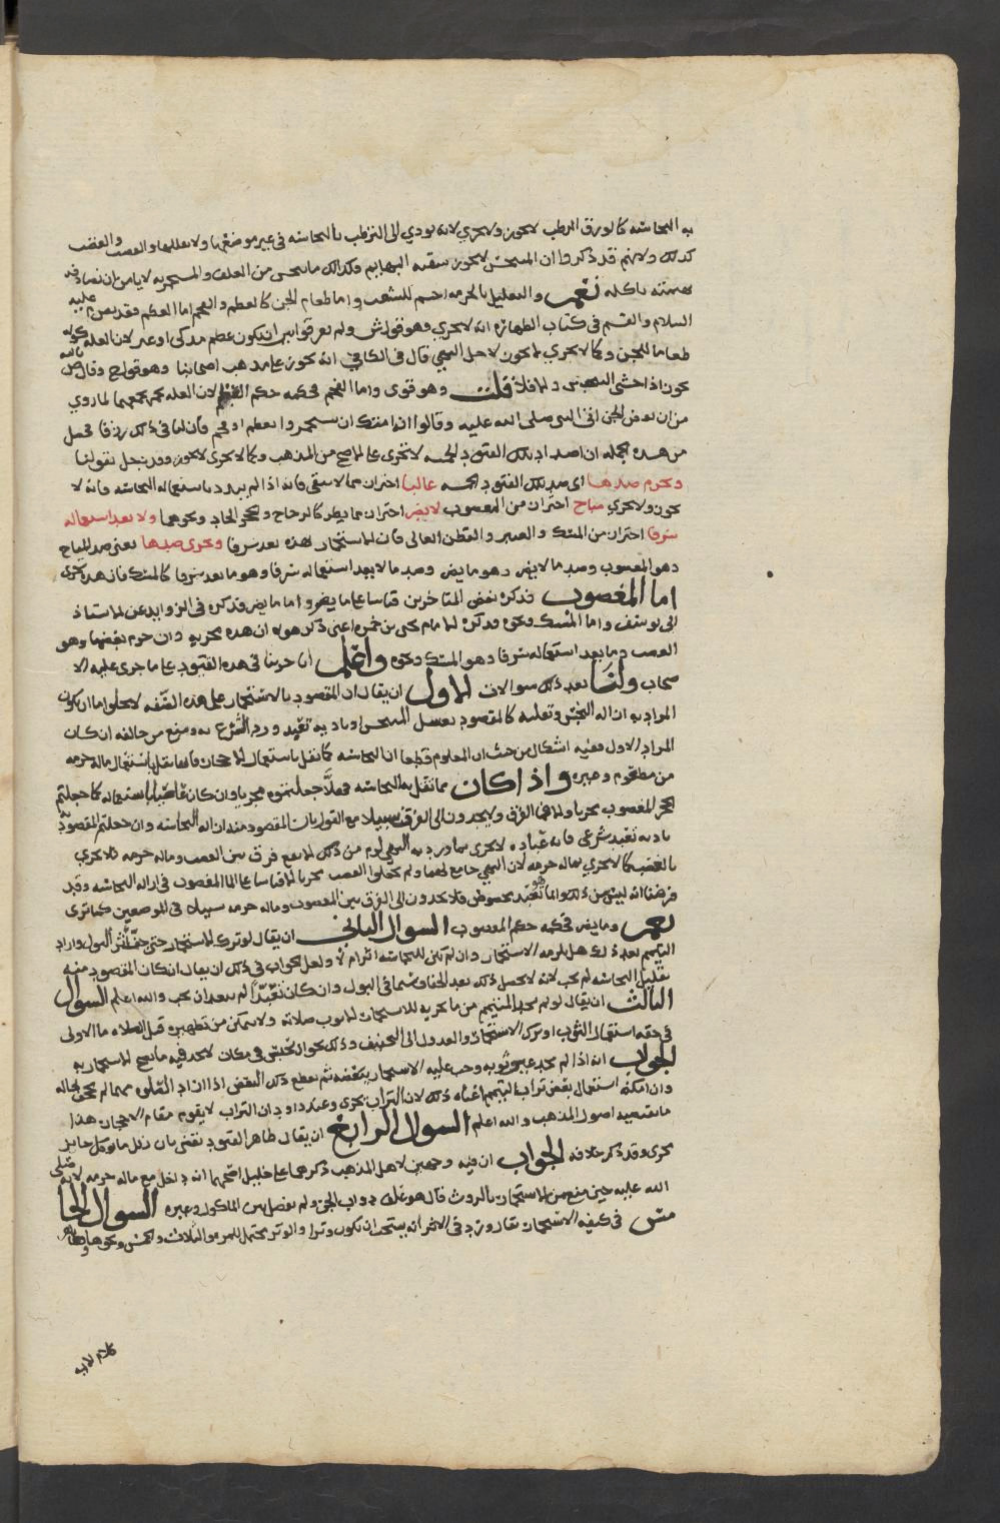 به النجاسه كالورق الرطب لا يجوز ولا يجزي لانه يودي الى الترطب بالنجاسه في غير موضعها ولا تقللها والعصب والغصب
كذلك ولانهم قد ذكروا ان المتنجس لا يجوز سقيه البهايم وكذلك ما تنجس من العلف والمستجمر به لا يامن ان تصادفه
بهيمته تاكله نعم والتعليل بالحرمه احسم للشغب واما طعام الجن كالعظم والفحم اما العظم فقد نص م عليه
السلام والقسم في كتاب الطهاره انه لا يجزي وهو قول ش ولم يفرقوا بين ان يكون عظم مذكى او غير لان العله كونه
طعاما للجن وكما لا يجزي لا يجوز لاجل النهي قال في الكافي انه يجوز على مذهب اصحابنا وهو قول ح وقال
يجوز اذا خشي التنجيس والا فلا قلت وهو قوي واما الفحم فحكمه حكم العظم لان العله تجمعهما لما روي
من ان بعض الجن اتى النبي صلى الله عليه وقالوا انها امتك ان يستجمروا بعظم او فحم فان لنا في ذلك رزقا فحصل
من هذه الجمله ان اضداد تلك القيود الخمسه لا تجزي على الصحيح من المذهب وكما لا يجزي لا يجوز وقد دخل تقولنا
ويحرم ضدها اي ضد تلك القيود الخمسه غالبا احتراز مما لا ينقي فانه اذا لم يرد باستعماله النجاسه فانه لا
يجوز ولا يجزي مباح احتراز من المغصوب لا يضر احتراز مما يضر كالزجاج والحجر الحاد ونحوهما ولا يعد استعماله
سرفا احتراز من المسك والعنبر والقطن الغالي فان الاستجمار بهذه يعد سرفا ويجزي ضدها يعني ضد المباح
وهو المغصوب وضد ما لا يضر وهو ما يضر وضد ما لا يعد استعماله سرفا وهو ما يعد سرفا كالمسك فان هذه تجزي
اما المغصوب فذكره بعض المتاخرين قياسا على ما يضر واما ما يضر فذكره في الزوايد عن الاستاذ
ابي يوسف واما المسك ونحوه فذكره الامام يحيى بن حمزه اعني ذكر هولا ان هذه تجزي وان حرم بعضها وهو
الغصب وما يعد استعماله سرفا وهو المسك ونحوه واعلم انا جرينا في هذه القيود على ما جرى عليه الا
صحاب ولنا بعد ذلك سوالات الاول ان يقال ان المقصود بالاستجمار على هذه الصفه لا يخلوا اما ان يكون
المراد به ازاله النجس وتقليله كالمقصود بغسل المتنجس او تاديه تعبد ورد الشرع به ومنع من خالفه ان كان
المراد الاول ففيه اشكال من حيث ان المعلوم قطعا ان النجاسه كما تقل باستعمال الاحجار فانها تقل باستعمال ماله حرمه
من مطعوم وغيره واذا كان مما تقل به النجاسه فهلا جعلتموه مجزيا وان كان عاصيا باستعماله كما جعلتم
الحجر المغصوب مجزيا ولا هي الفرق ولا يجدون الى الفرق سبيلا مع القول بان المقصود منه ازاله النجاسه وان جعلتم المقصود به
تاديه تعبد شرعي فانه عباده لا يجزي بما ورد به النهي لزم من ذلك الا يقع فرق بين الغصب وماله حرمه فلا يجزي
بالغصب كما لا يجزي بماله حرمه لان النهي جامع لهما ولم يجعلوا الغصب مجزيا الا قياسا على الما المغصوب في ازاله النجاسه وقد
فرضنا انه ليس من ذلك وانما هو تعبد مخصوص فلا يجدون الى الفرق بين المغصوب وماله حرمه سبيلا في الموضعين كما ترى
نعم وما يضر فحكمه حكم المغصوب السوال الثاني ان يقال لو ترك الاستجمار حتى جف اثر البول واراد
التيمم بعد ذلك هل يلزمه الاستجمار وان لم يكن للنجاسه اثر ام لا ولعل الجواب في ذلك ان يقال ان كان المقصود منه
تقليل النجاسه لم يجب لانه لا يحصل ذلك بعد الجفاف سيما في البول وان كان تعبدا لم يبعد ان يجب والله اعلم السوال
الثالث ان يقال لو لم يجد المتيمم من ما يجزيه للاستجمار الا ثوب صلاته ولا يتمكن من تطهيره قبل الصلاه ما الاولى
في حقه استعمال الثوب او ترك الاستجمار والعدول الى التجفيف وذلك نحو ان يحبس في مكان لا يجد فيه ما يصح الاستجمار به
الجواب انه اذا لم يجد غير ثوبه وجب عليه الاستجمار ببعضه ثم يقطع ذلك البعض اذا اراد الصلوه مهما لم يجحف بحاله
وان امكنه استعمال بعض تراب المتيمم اغناه ذلك لان التراب يجزي وعند داود ان التراب لا يقوم مقام الاحجار هذا
ما تقتضيه اصول المذهب والله اعلم السوال الرابع ان يقال ظاهر القيود يقضي بان زبل ما يوكل جايز
يجزي وقد ذكر خلافه الجواب ان فيه وجهين لاهل المذهب ذكرهما علي خليل اصحهما انه دخل مع ماله حرمه لانه صلى
الله عليه حين منع من الاستجمار بالروث قال هو علف دواب الجن ولم يفصل بين الماكول وغيره السوال الخا
مس في كيفيه الاستجمار يقال ورد في الاثر انه يستحب ان يكون وترا والوتر يحتمل المره والثلاث والخمس ونحوها وظاهر
كلام لاب